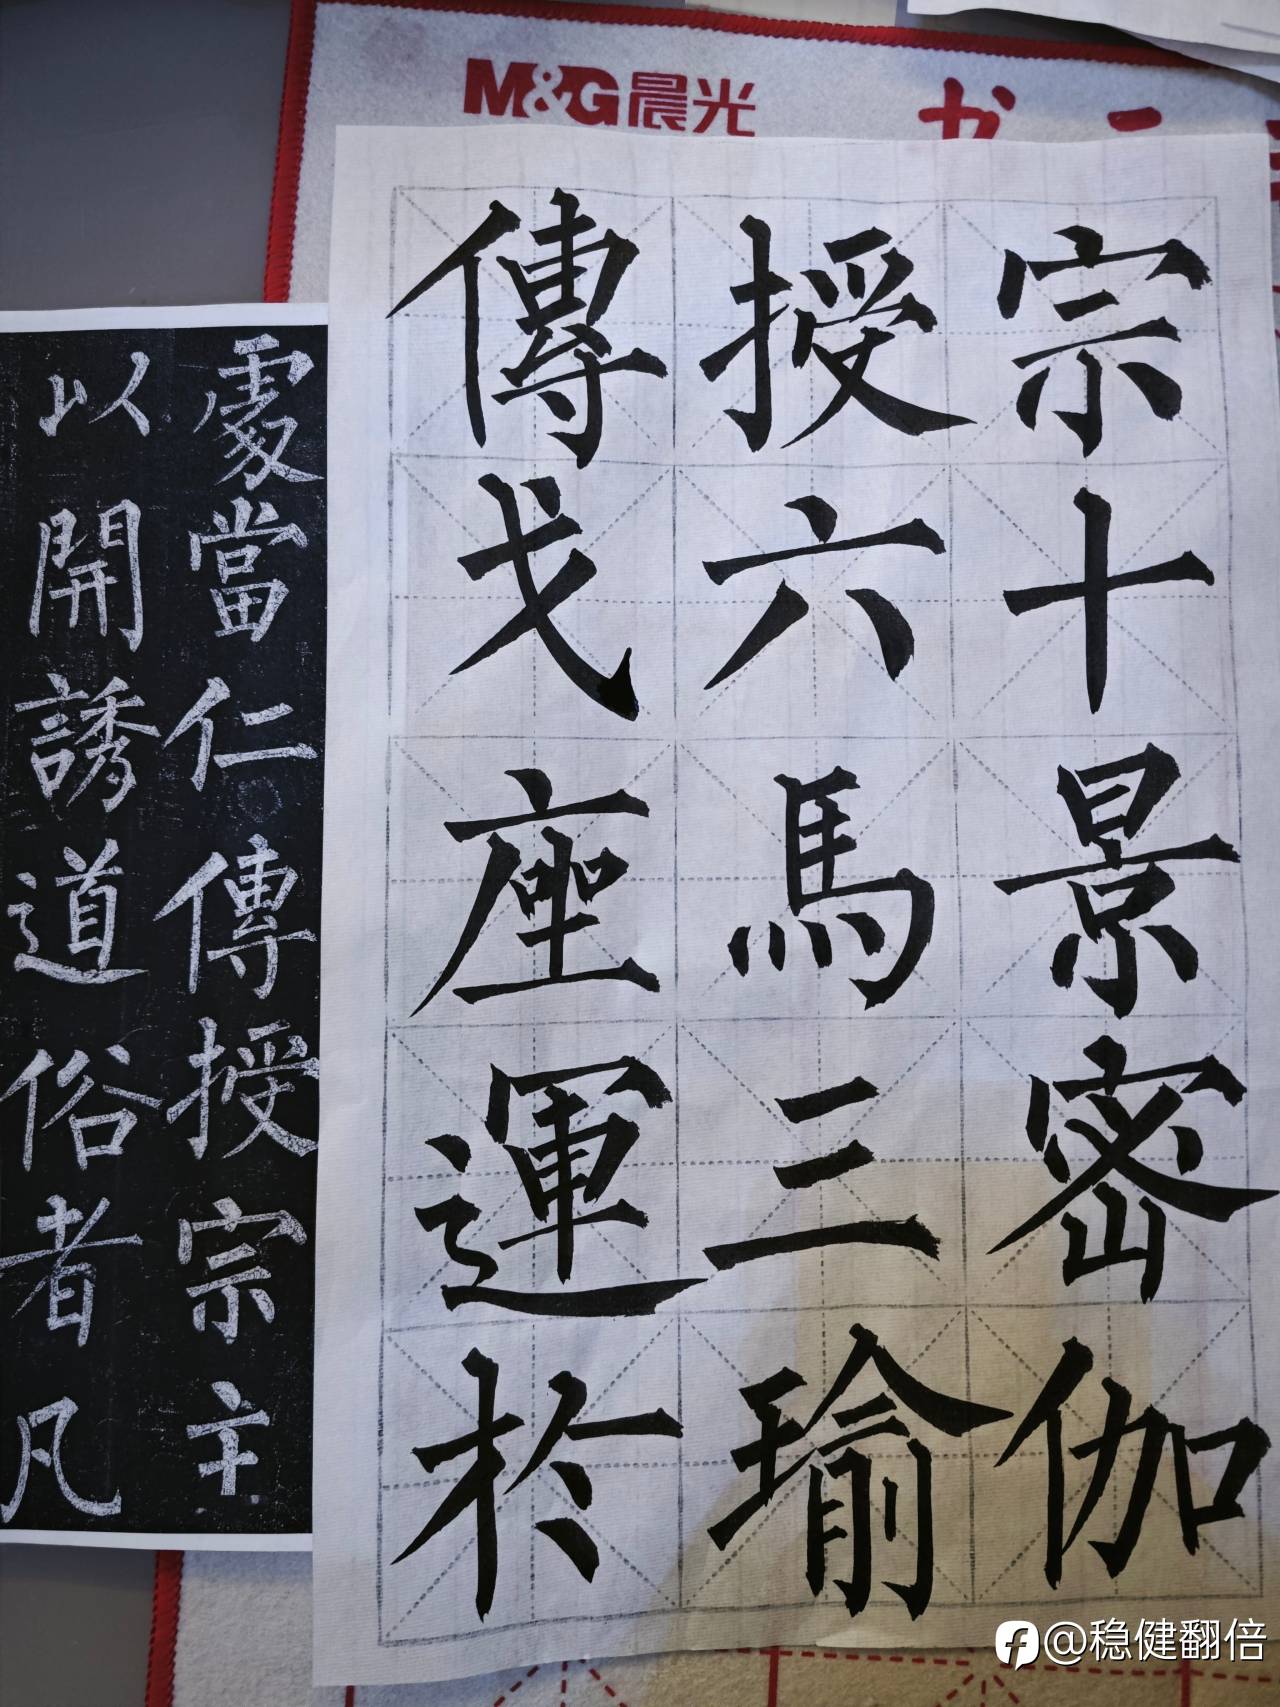 M&G晨光
傳授宗
戈六十
座馬景
運三密
於瑜伽
處當仁傳授宗主
以開誘道俗者凡
@稳健翻倍